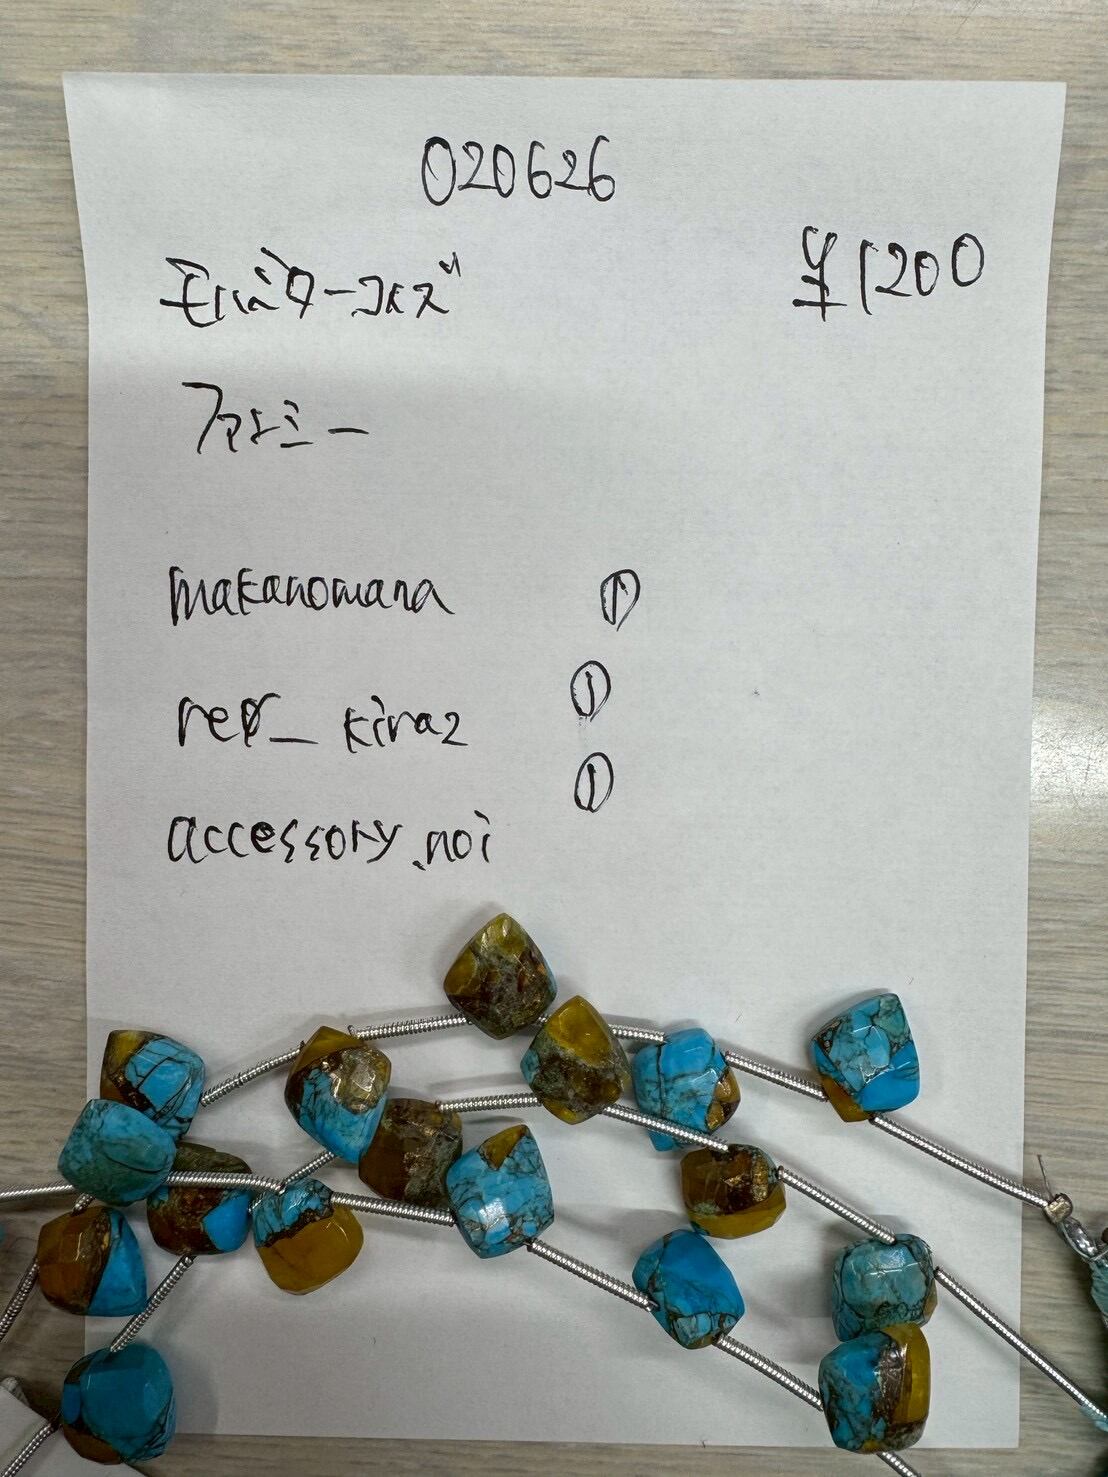 020626
モハベターコイズ
¥1200
ファンシー
makanomana ①
rer_kira2 ①
accessory.noi ①